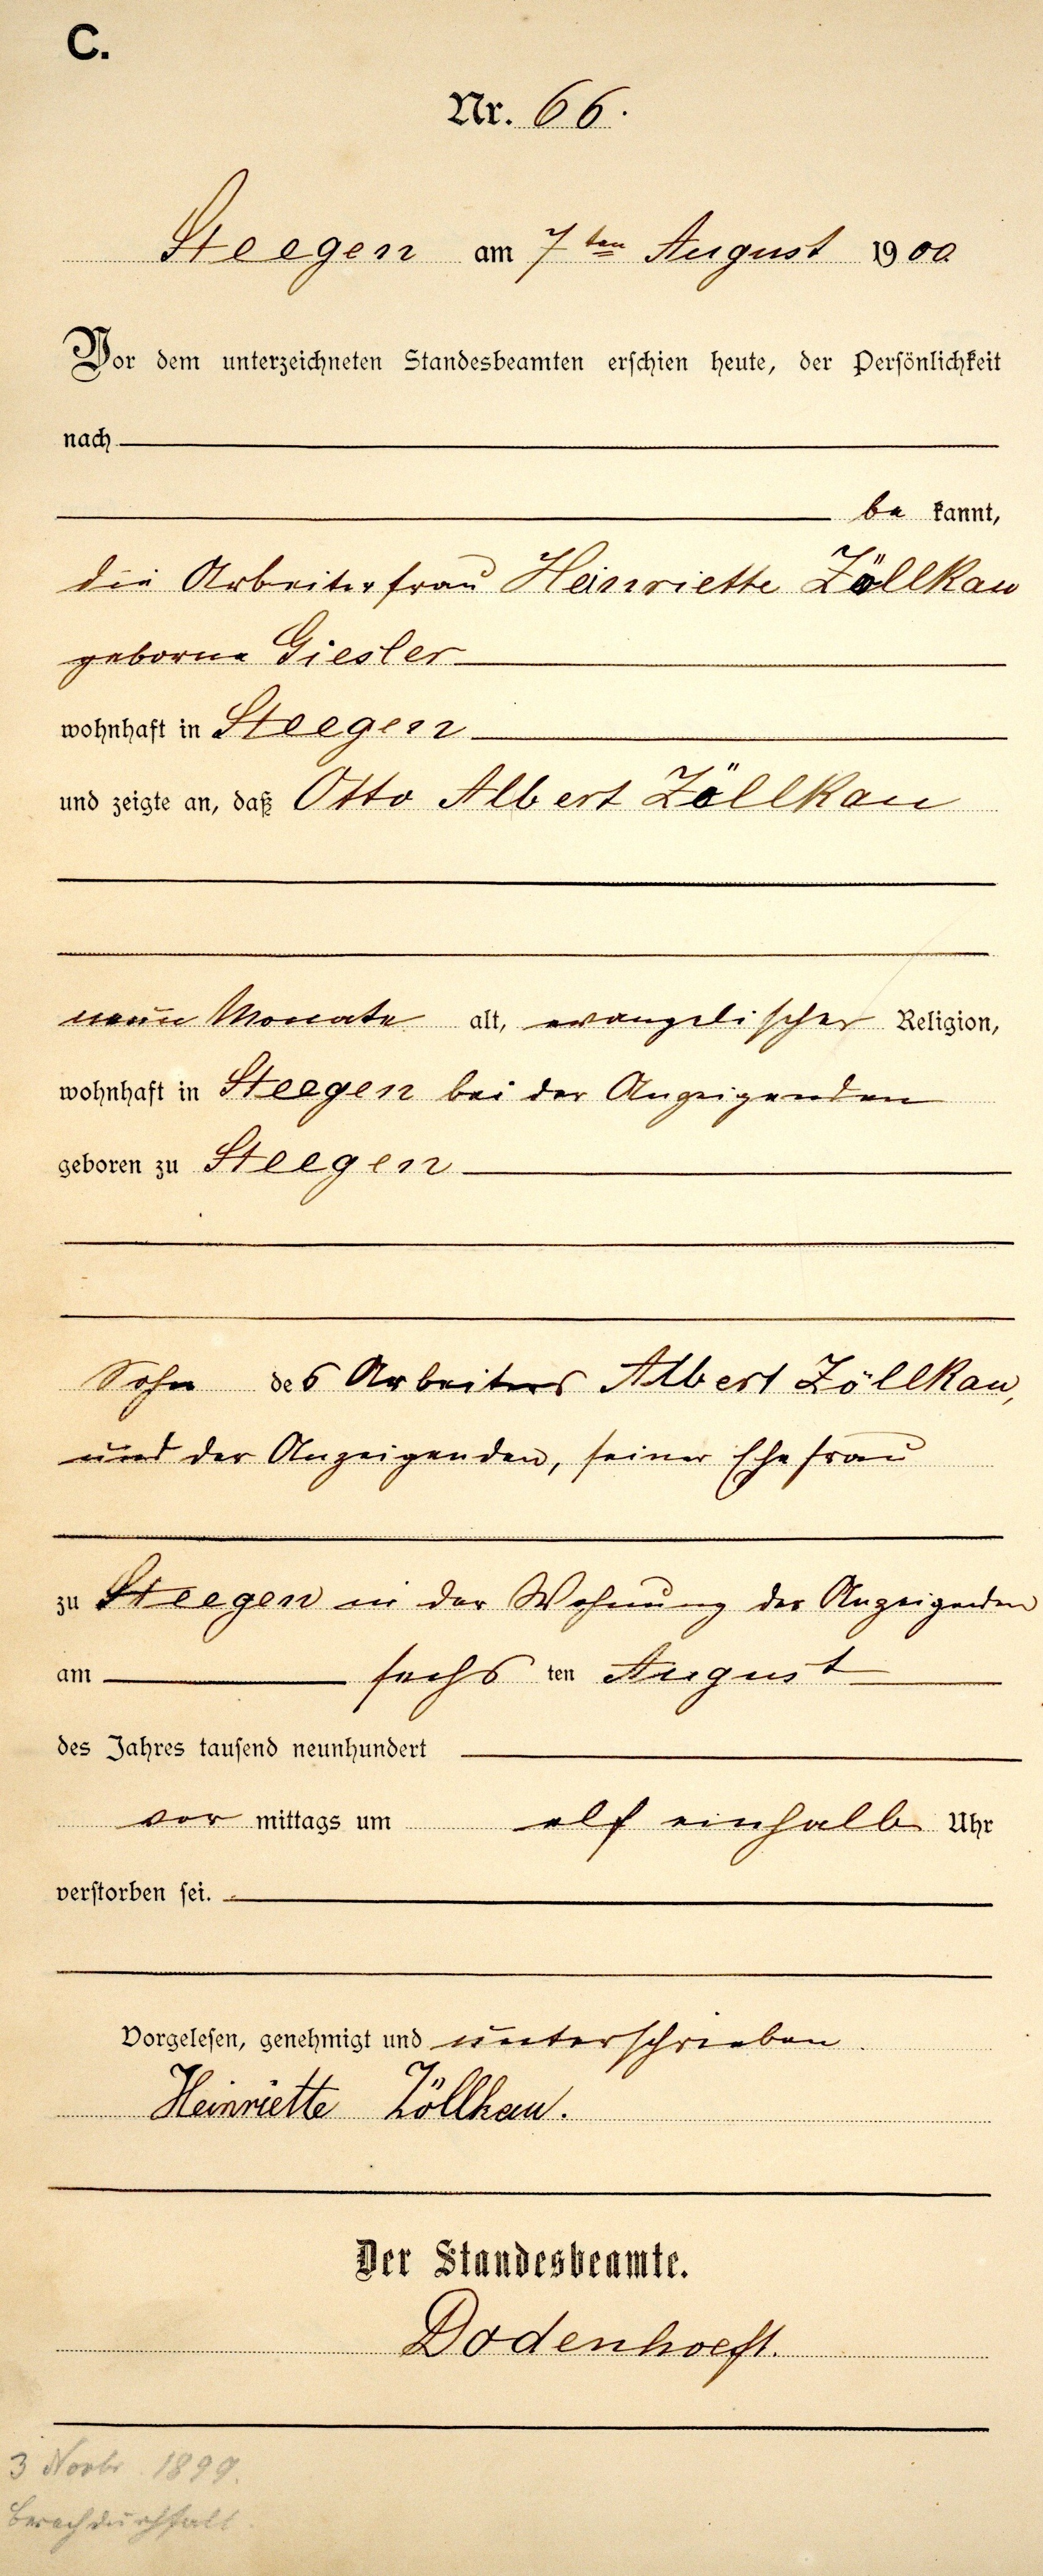 C.
Nr. 66.
Steegen am 7ten August 1900
Vor dem unterzeichneten Standesbeamten erschien heute, der Persönlichkeit
nach
be kannt,
die Arbeiterfrau Heinriette Zöllkau
geborne Giesler
wohnhaft in Steegen
und zeigte an, daß Otto Albert Zöllkau
neun Monate alt, evangelischer Religion,
wohnhaft in Steegen bei der Anzeigenden
geboren zu Steegen
Sohn des Arbeiters Albert Zöllkau,
und der Anzeigenden, seiner Ehefrau
zu Steegen in der Wohnung der Anzeigenden
am sechs ten August
des Jahres tausend neunhundert
vor mittags um elf einhalb Uhr
verstorben sei.
Vorgelesen, genehmigt und unterschrieben
Heinriette Zöllkau.
Der Standesbeamte.
Dodenhoeft.
3 Novbr. 1899.
Brechdurchfall.